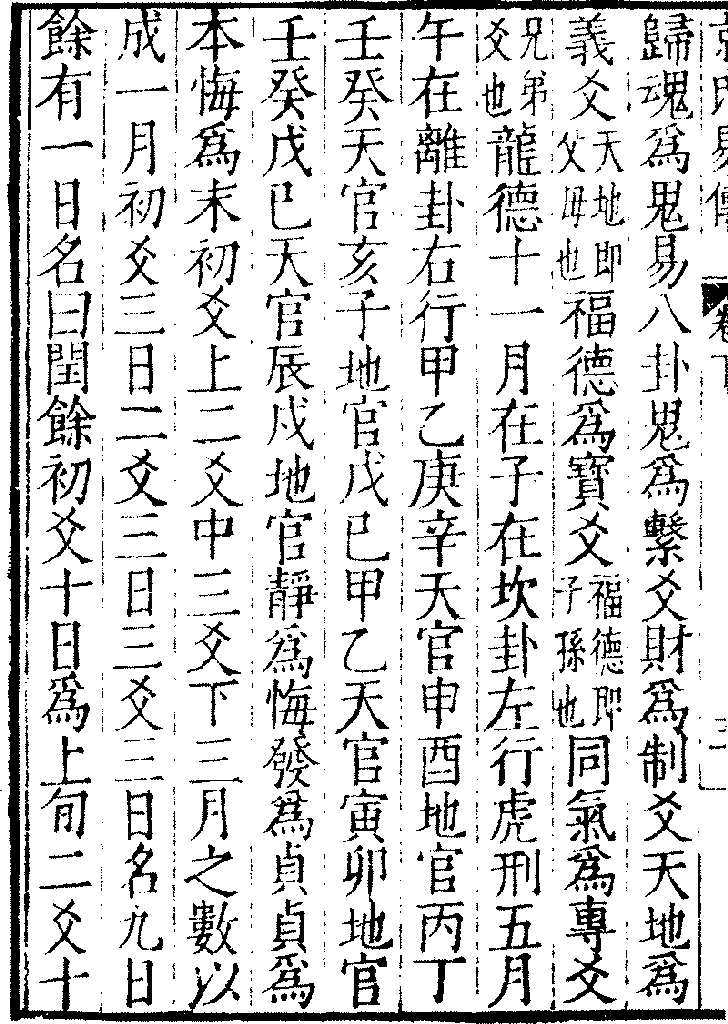 歸魂爲鬼易八卦鬼爲繫爻財爲制爻天地爲
義爻天地即父母也福德爲寶爻福德即子孫也同氣爲專爻
兄弟爻也龍德十一月在子在坎卦左行虎刑五月
午在離卦右行甲乙庚辛天官申酉地官丙丁
壬癸天官亥子地官戊己甲乙天官寅卯地官
壬癸戊己天官辰戌地官靜爲悔發爲貞貞爲
本悔爲末初爻上二爻中三爻下三月之數以
成一月初爻三日二爻三日三爻三日名九日
餘有一日名曰閏餘初爻十日爲上旬二爻十